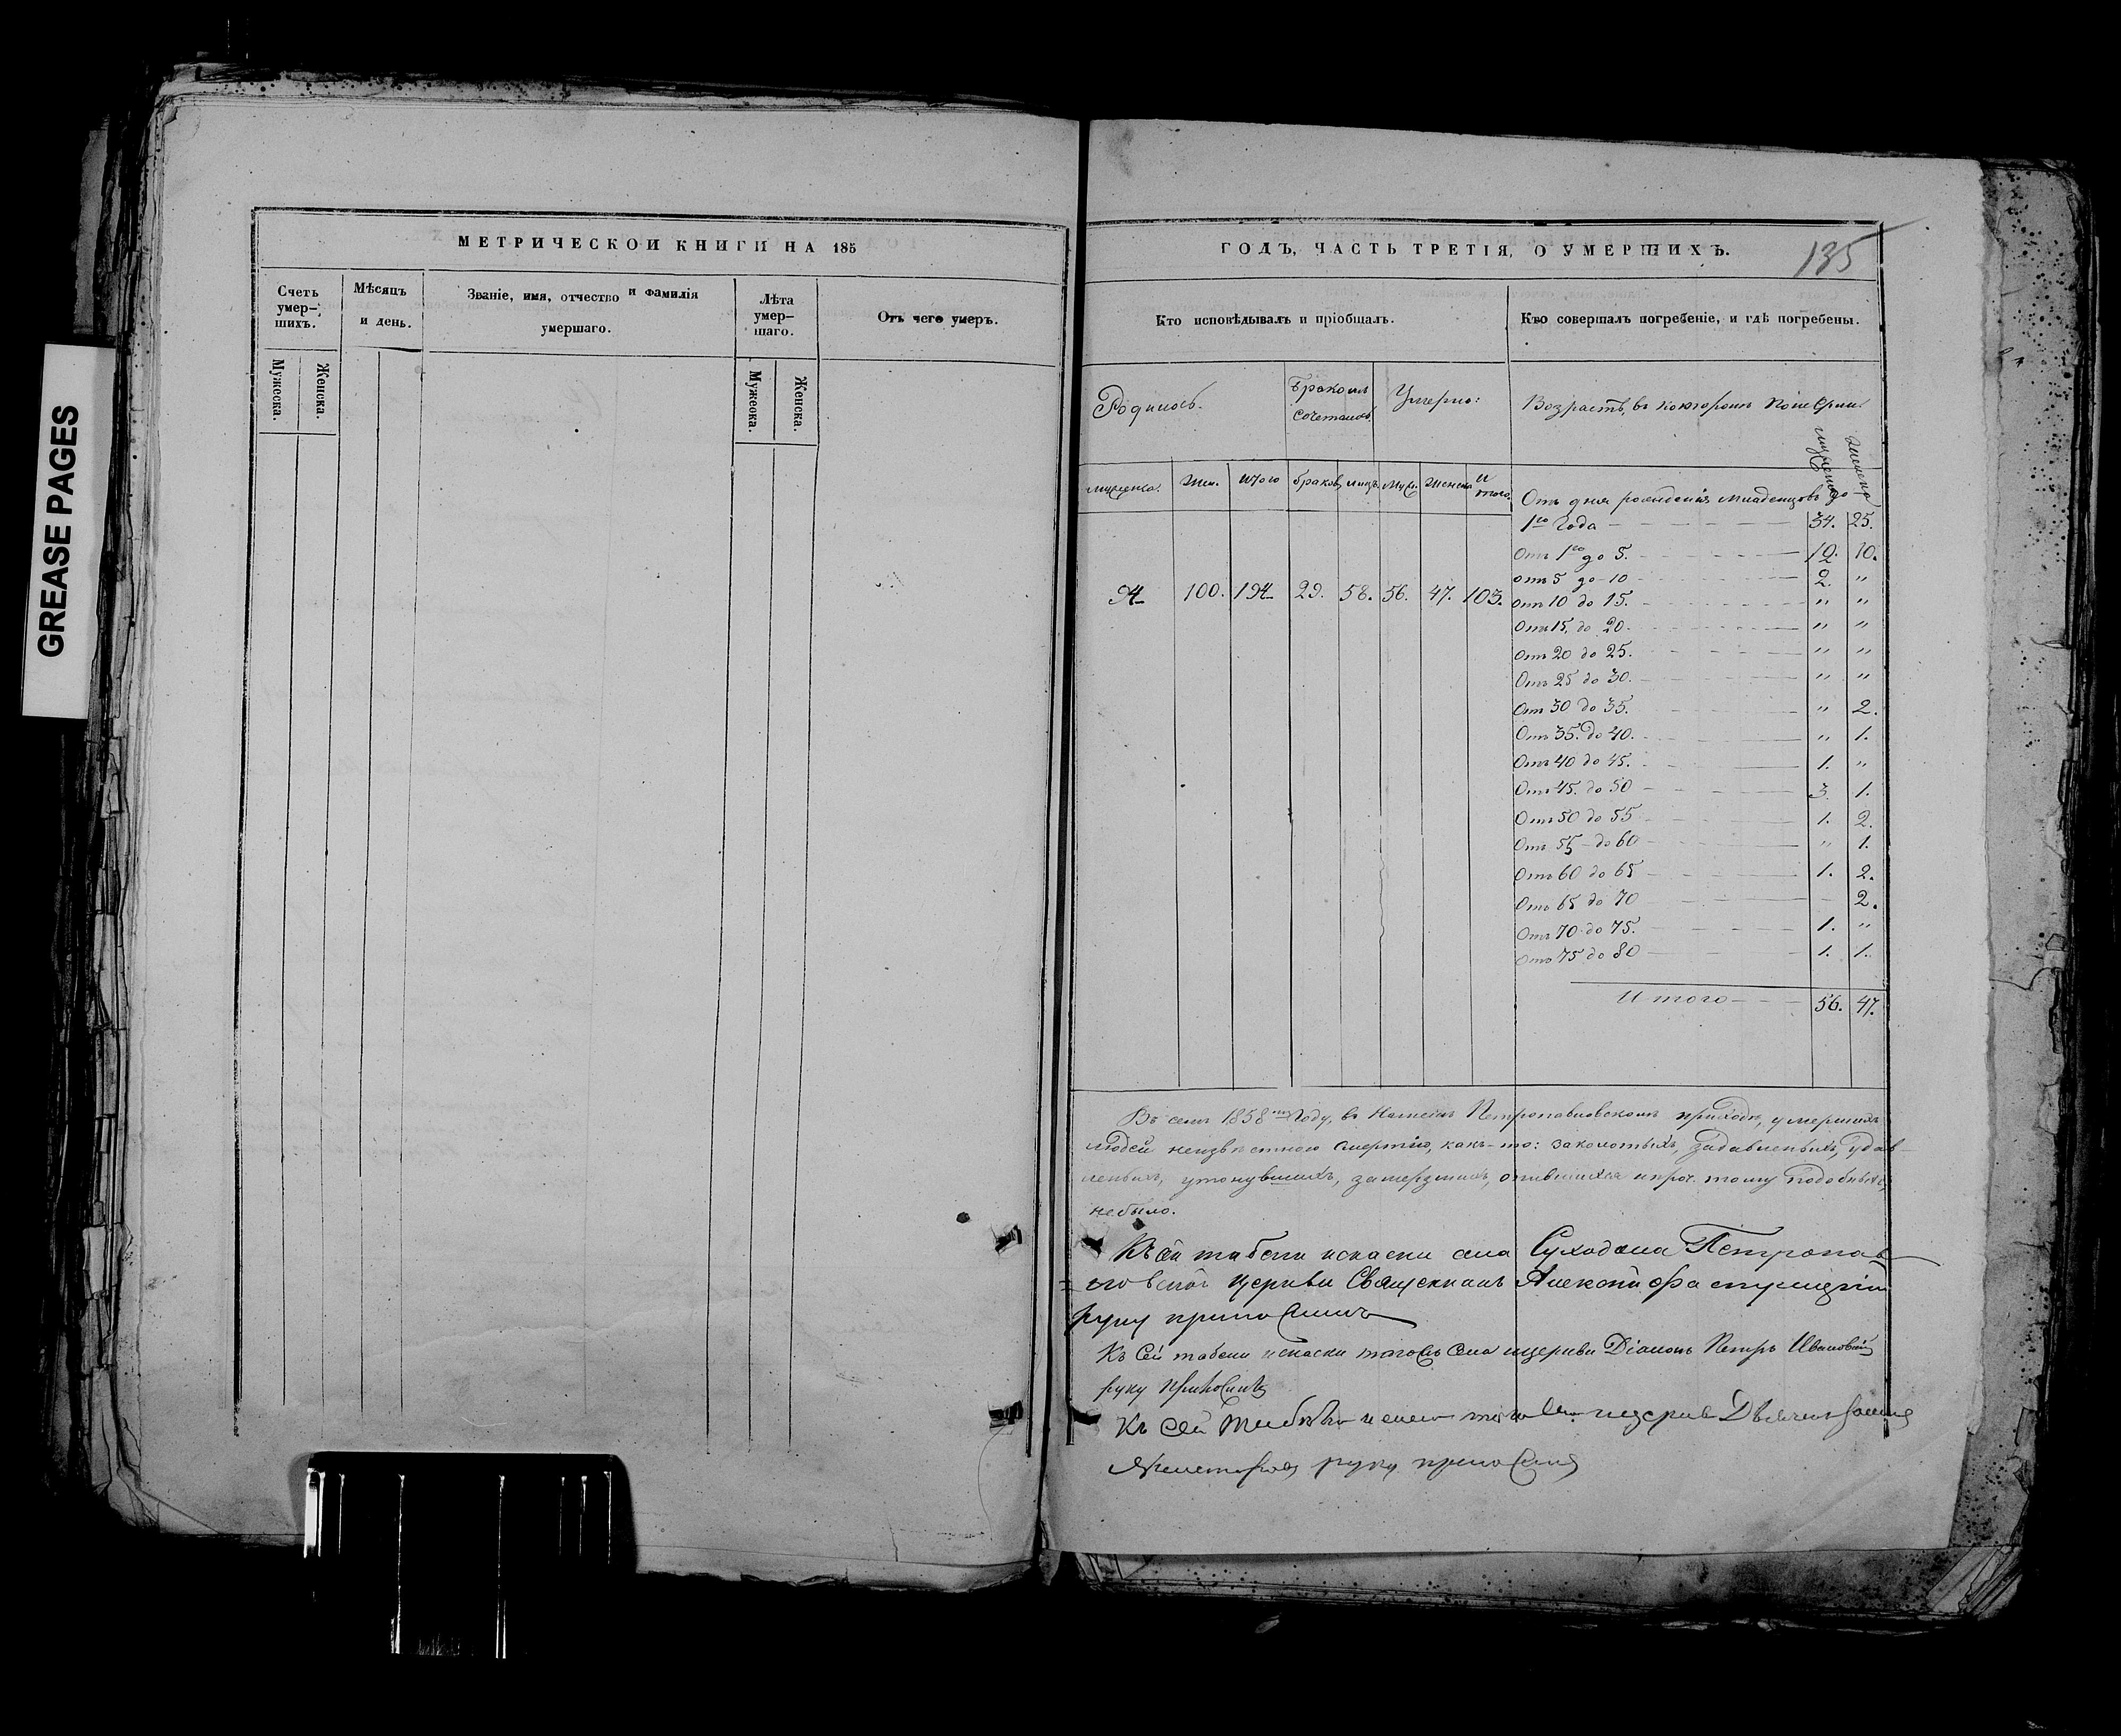 GREASE PAGES
МЕТРИЧЕСКОЙ КНИГИ НА 185
Счетъ умер-шихъ.
Мужеска.
Женска.
Мѣсяцъ и день.
Званіе, имя, отчество и фамилія умершаго.
Лѣта умер-шаго.
Мужеска.
Женска.
Отъ чего умеръ.
ГОДЪ, ЧАСТЬ ТРЕТІЯ, О УМЕРШИХЪ.
135
Кто исповѣдывалъ и пріобщалъ.
Кто совершалъ погребеніе, и гдѣ погребены.
Родилось.
Бракомъ сочеталось
Умерло:
Возрастъ, въ которомъ померли.
мужеска.
Жен.
Итого
браков
лицъ
Муж.
Женска
Итого
мужеска
Женска
Отъ дня рожденія младенцовъ до
1го Года 34. 25.
Отъ 1го до 5. 12. 10.
отъ 5 до 10 2. "
94 100. 194 29. 58. 56. 47. 103.
Отъ 10 до 15. " "
Отъ 15. до 20. " "
Отъ 20 до 25. " "
Отъ 25 до 30. " "
Отъ 30 до 35. " 2.
Отъ 35. до 40. " 1.
Отъ 40 до 45. 1. "
Отъ 45. до 50 3. 1.
Отъ 50 до 55 1. 2.
Отъ 55 до 60 " 1.
Отъ 60 до 65 1. 2.
Отъ 65 до 70 - 2.
Отъ 70 до 75. 1. "
Отъ 75 до 80 1. 1.
Итого 56. 47.
Въ семъ 1858мъ Году, въ нашемъ Петропавловскомъ приходѣ, умершихъ
людей неизвѣстною смертію, какъ-то: заколотыхъ, задавленыхъ, удав-
леныхъ, утонувшихъ, замерзшихъ, опившихся и проч. тому подобныхъ,
небыло.
Къ сей табели и сказки села Суходола Петропав
ловской церкви Священникъ Алексій
руку приложилъ
Къ сей табели и сказки тогожъ села церкви Діаконъ Петръ Ивановскій
руку приложилъ
Къ сей церкви Дьячекъ
руку приложилъ